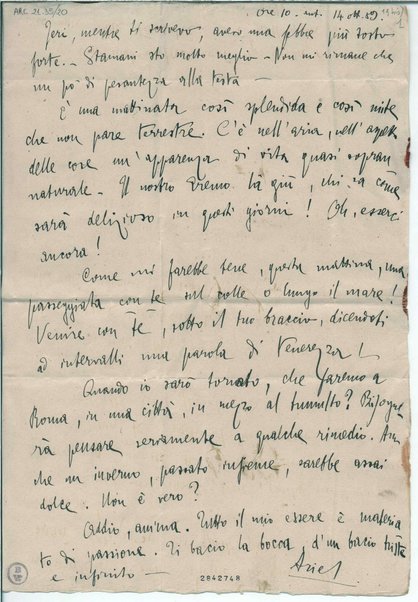 ARC 21.35/20
Ore 10. ant. 14 ott. 89
Jeri, mentre ti scrivevo, avevo una febbre più tosto
forte. - Stamani sto molto meglio - Non mi rimane che
un pò di pesantezza alla testa -
È una mattinata così splendida e così mite
che non pare terrestre. C'è nell'aria, nell'aspetto
delle cose un'apparenza di vita quasi sopran
naturale - Il nostro Eremo, là giù, chi sa come
sarà delizioso in questi giorni! Oh, esserci
ancora!
Come mi farebbe bene, questa mattina, una
passeggiata con te sul colle o lungo il mare!
Venire con Te, sotto il tuo braccio, dicendoti
ad intervalli una parola di tenerezza!
Quando io sarò tornato, che faremo a
Roma, in una città, in mezzo al tumulto? Bisogne-
rà pensare seriamente a qualche rimedio. An
che un inverno, passato insieme, sarebbe assai
dolce. Non è vero?
Addio, anima. Tutto il mio essere è materia
to di passione. Ti bacio la bocca d'un bacio triste
e infinito -
Ariel
2842748